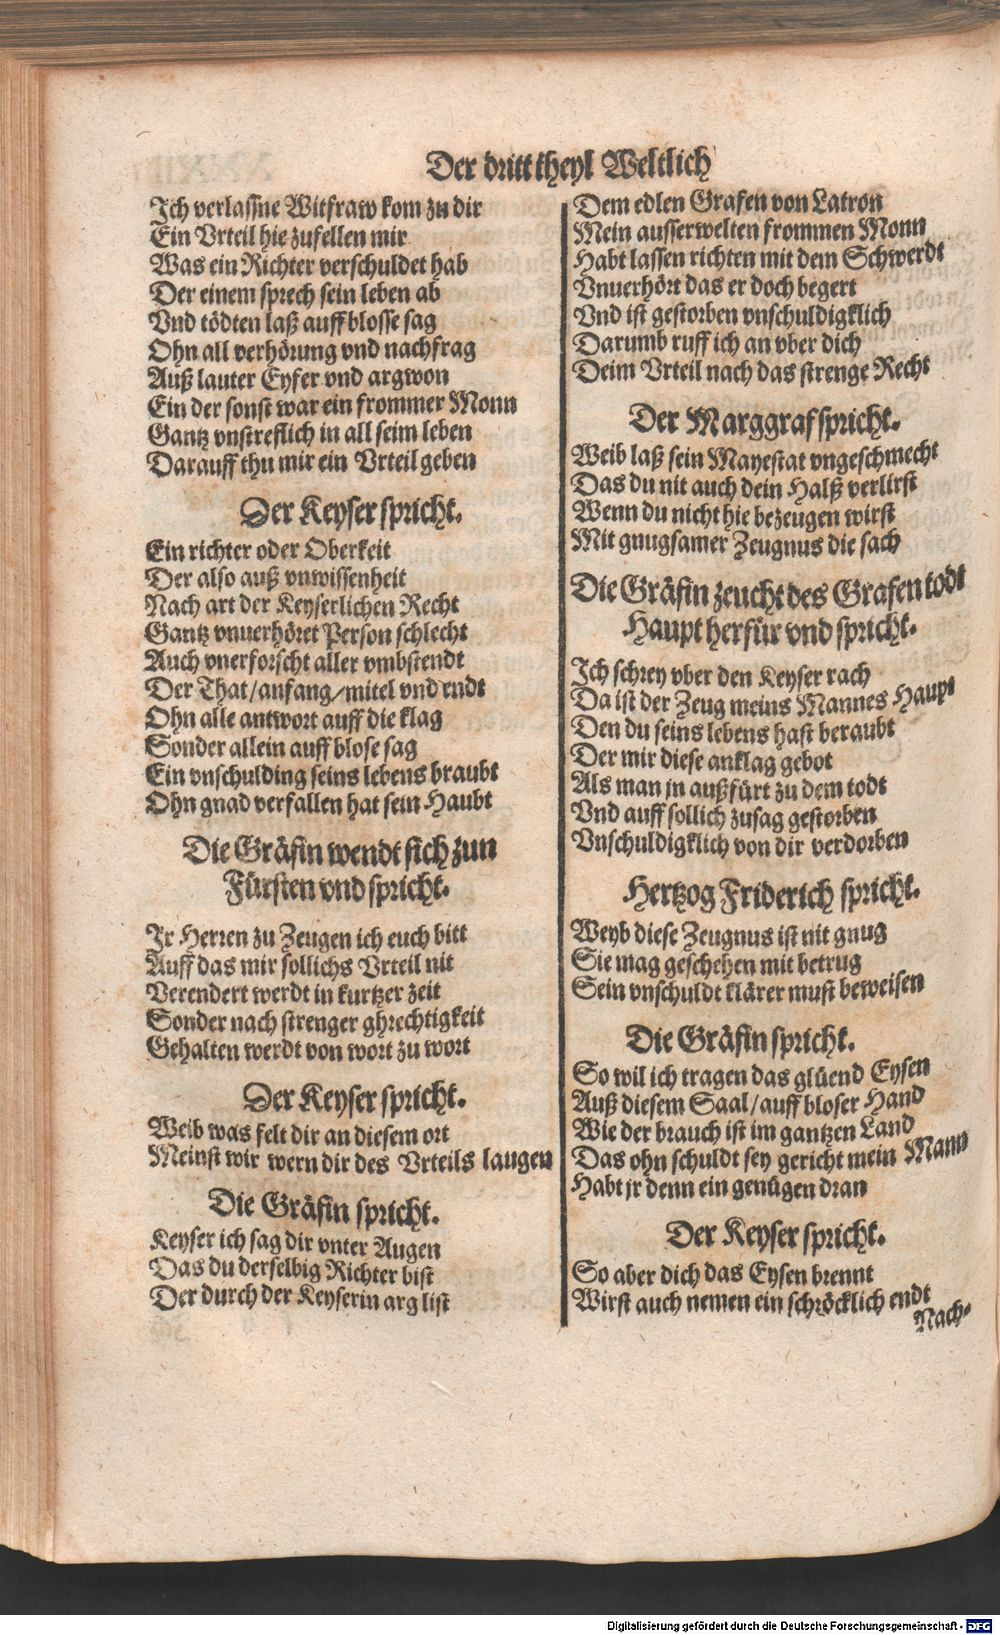 Der dritt theyl Weltlich
Ich verlassne Witfraw kom zu dir
Ein Vrteil hie zufellen mir
Was ein Richter verschuldet hab
Der einem sprech sein leben ab
Vnd tödten laß auff blosse sag
Ohn all verhörung vnd nachfrag
Auß lauter Eyfer vnd argwon
Ein der sonst war ein frommer Monn
Gantz vnstreflich in all seim leben
Darauff thu mir ein Vrteil geben
Der Keyser spricht.
Ein richter oder Oberkeit
Der also auß vnwissenheit
Nach art der Keyserlichen Recht
Gantz vnuerhöret Person schlecht
Auch vnerforscht aller vmbstendt
Der That/anfang/mitel vnd endt
Ohn alle antwort auff die klag
Sonder allein auff blose sag
Ein vnschulding seins lebens braubt
Ohn gnad verfallen hat sein Haubt
Die Gräfin wendt sich zun
Fürsten vnd spricht.
Ir Herren zu Zeugen ich euch bitt
Auff das mir sollichs Vrteil nit
Verendert werdt in kurtzer zeit
Sonder nach strenger ghrechtigkeit
Gehalten werdt von wort zu wort
Der Keyser spricht.
Weib was felt dir an diesem ort
Meinst wir wern dir des Vrteils laugen
Die Gräfin spricht.
Keyser ich sag dir vnter Augen
Das du derselbig Richter bist
Der durch der Keyserin arg list
Dem edlen Grafen von Latron
Mein ausserwelten frommen Monn
Habt lassen richten mit dem Schwerdt
Vnuerhört das er doch begert
Vnd ist gestorben vnschuldigklich
Darumb ruff ich an vber dich
Deim Vrteil nach das strenge Recht
Der Marggraf spricht.
Weib laß sein Mayestat vngeschmecht
Das du nit auch dein Halß verlirst
Wenn du nicht hie bezeugen wirst
Mit gnugsamer Zeugnus die sach
Die Gräfin zeucht des Grafen todt
Haupt herfür vnd spricht.
Ich schrey vber den Keyser rach
Da ist der Zeug meins Mannes Haupt
Den du seins lebens hast beraubt
Der mir diese anklag gebot
Als man jn außfürt zu dem todt
Vnd auff sollich zusag gestorben
Vnschuldigklich von dir verdorben
Hertzog Friderich spricht.
Weyb diese Zeugnus ist nit gnug
Sie mag geschehen mit betrug
Sein vnschuldt klärer must beweisen
Die Gräfin spricht.
So wil ich tragen das glüend Eysen
Auß diesem Saal/auff bloser Hand
Wie der brauch ist im gantzen Land
Das ohn schuldt sey gericht mein Mann
Habt jr denn ein genügen dran
Der Keyser spricht.
So aber dich das Eysen brennt
Wirst auch nemen ein schröcklich endt
Nach-
Digitalisierung gefördert durch die Deutsche Forschungsgemeinschaft - DFG